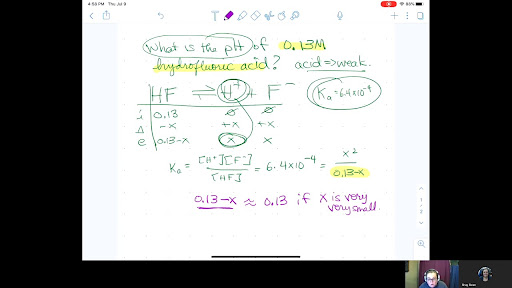 4:53 PM Thu Jul 9
What is the pH of 0.13M
hydrofluoric acid? acid ⇒ weak.
HF ⇌ H⁺ + F⁻
Ka = 6.4×10⁻⁴
i 0.13 0 0
Δ -x +x +x
e 0.13-x x x
Ka = [H⁺][F⁻] / [HF] = 6.4×10⁻⁴ = x² / 0.13-x
0.13-x ≈ 0.13 if x is very
very small.